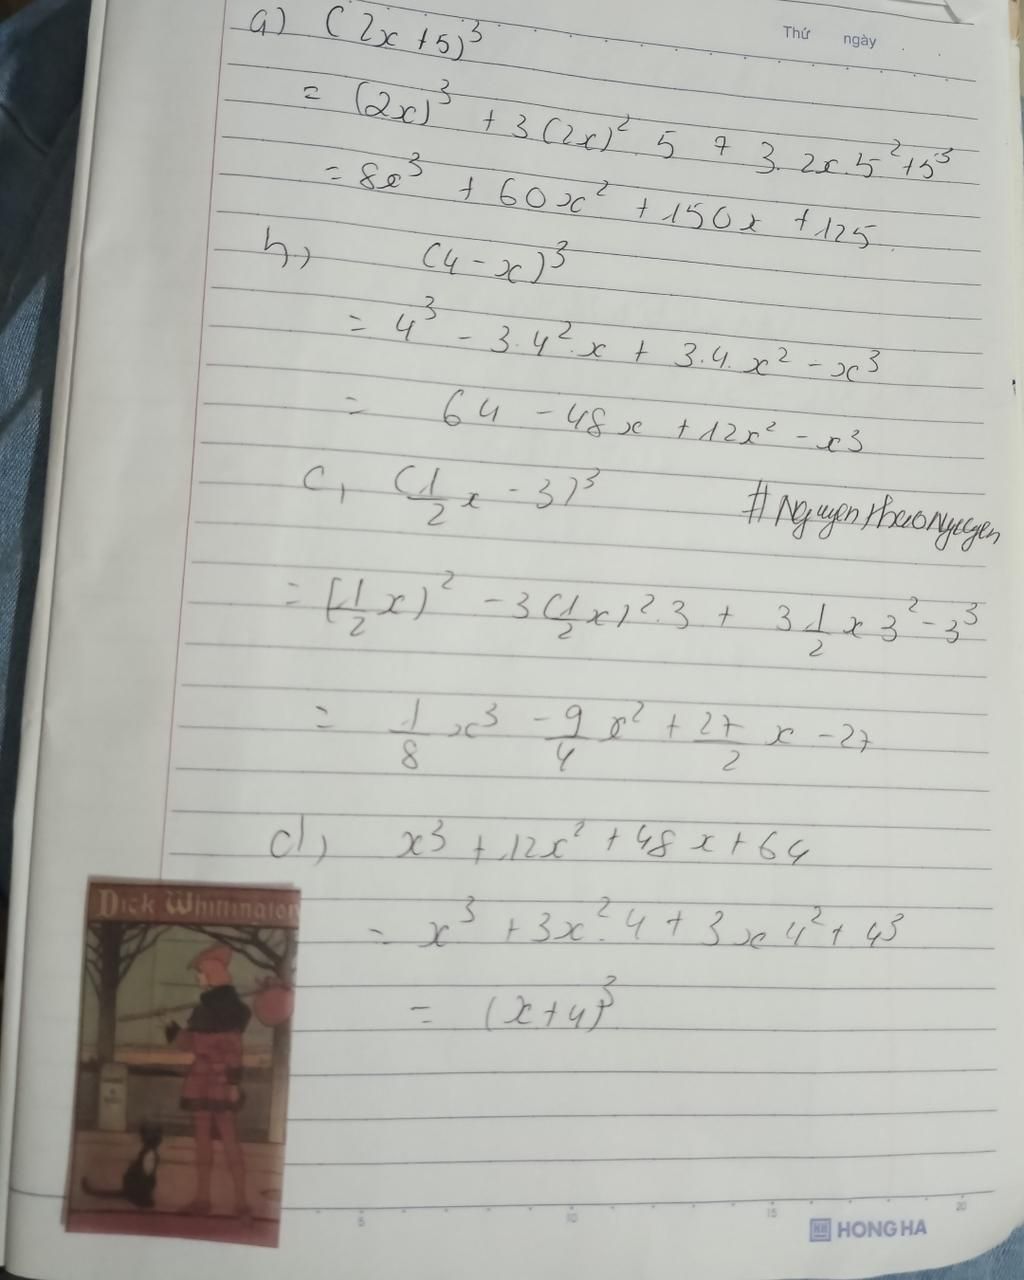 Thứ ngày
a) (2x+5)³
= (2x)³ + 3(2x)² 5 + 3.2x.5²+5³
= 8x³ + 60x² + 150x + 125.
b,) (4-x)³
= 4³ - 3.4².x + 3.4.x² - x³
= 64 - 48x + 12x² - x³
c, (1/2x - 3)³
#NguyenthaoNguyen
= (1/2x)² - 3(1/2x)².3 + 3 1/2 x 3² - 3³
= 1/8 x³ - 9/4 x² + 27/2 x - 27
d) x³ + 12x² + 48x + 64
= x³ + 3x².4 + 3x4² + 4³
= (x+4)³
Dick Whittington
5 10 15 20
HONG HA